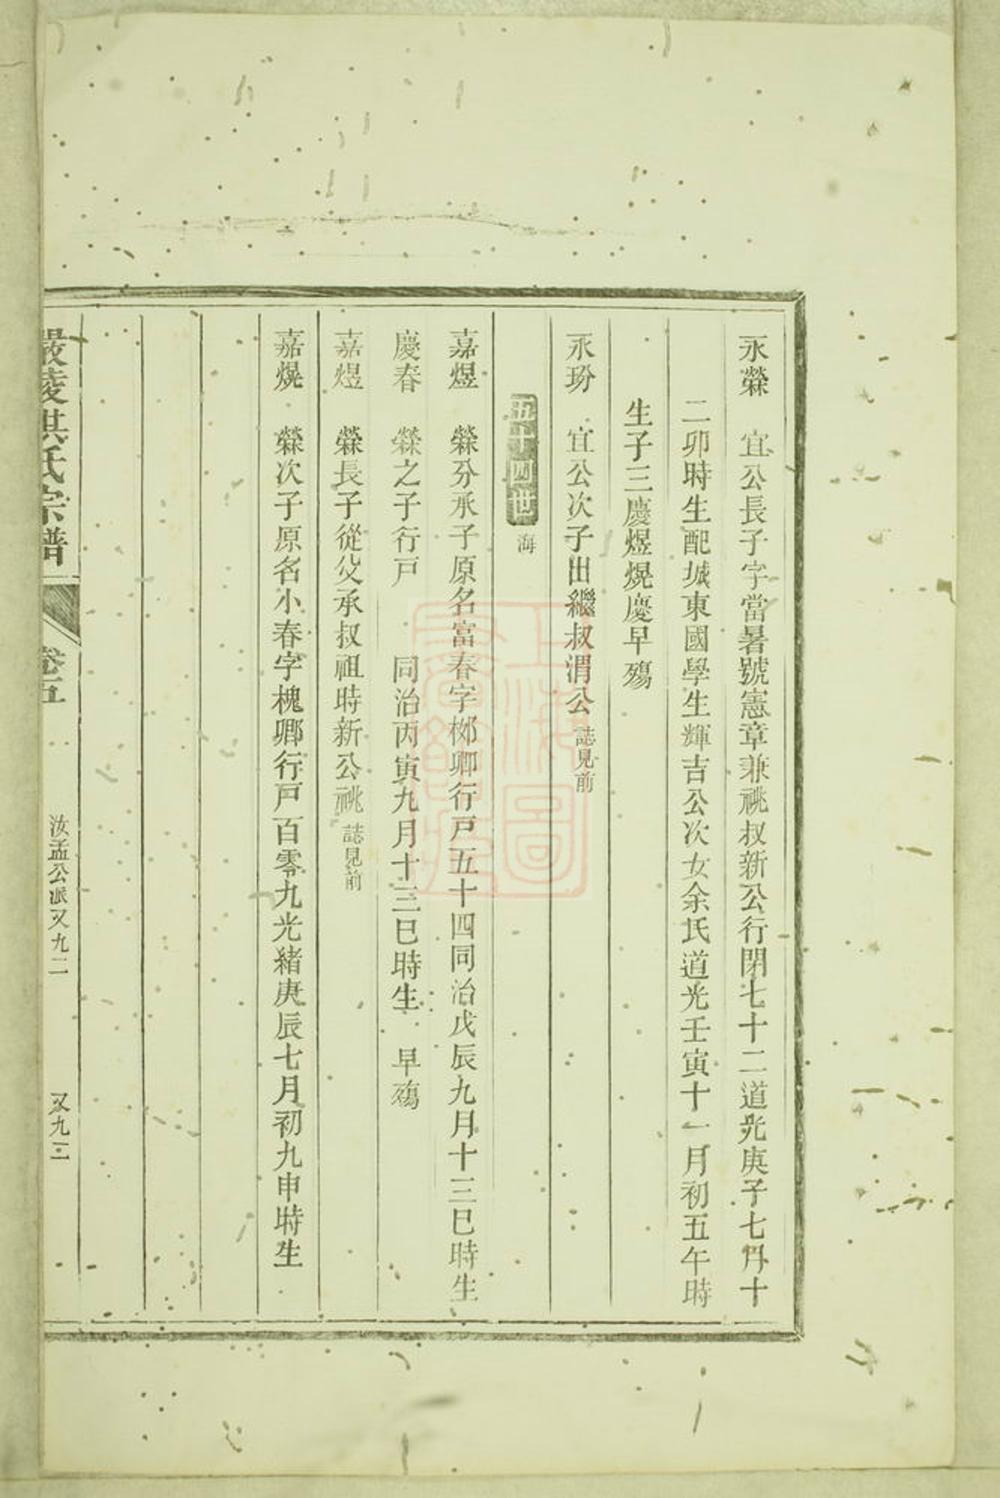 永櫱 宜公長子字當暑號憲章兼祧叔新公行閉七十二道光庚子七月十
二卯時生配城東國學生輝吉公次女余氏道光壬寅十一月初五午時
生子三慶煜熀慶早殤
永玢 宜公次子出繼叔渭公誌見前
五十四世 海
嘉煜 櫱分承子原名富春字郴卿行戸五十四同治戊辰九月十三巳時生
慶春 櫱之子行戸 同治丙寅九月十三巳時生 早殤
嘉煜 櫱長子從父承叔祖時新公祧誌見前
嘉熀 櫱次子原名小春字槐卿行戸百零九光緒庚辰七月初九申時生
嚴陵洪氏宗譜 卷五 汝孟公派又九二 又九二
上海圖書館藏